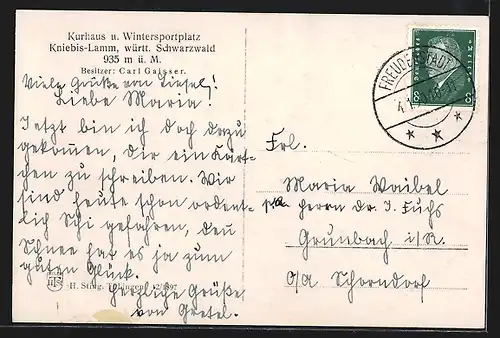 Kurhaus u. Wintersportplatz
Kniebis-Lamm, württ. Schwarzwald
935 m ü. M.
Besitzer: Carl Gaisser.
Viele Grüße von Liesel!
Liebe Maria!
Jetzt bin ich doch dazu
gekommen, dir ein Kärt-
chen zu schreiben. Wir
sind heute schon ordent-
lich Schi gefahren, den
Schnee hat es ja zum
guten Glück.
Herzliche Grüße
von Gretel.
H. Sting, Tübingen
FREUDENSTADT
8 8
Frl.
Maria Waibel
Herrn Dr. J. Fuchs
Grunbach i/R.
O/A Schorndorf